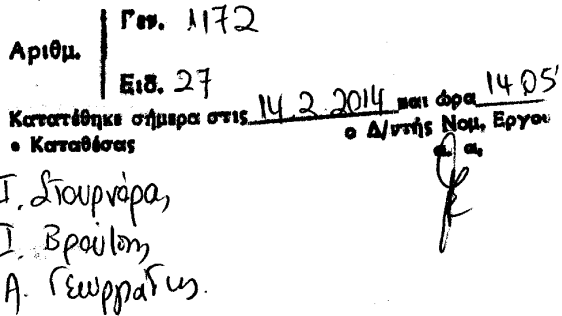 Γεν. 1172
Αριθμ.
Ειδ. 27
Κατατέθηκε σήμερα στις 14.2.2014 και ώρα 14 05'
• Καταθέσας ο Δ/ντής Νομ. Εργου
α. α.
Ι. Στουρνάρας
Ι. Βρούτσης
Α. Γεωργιάδης.